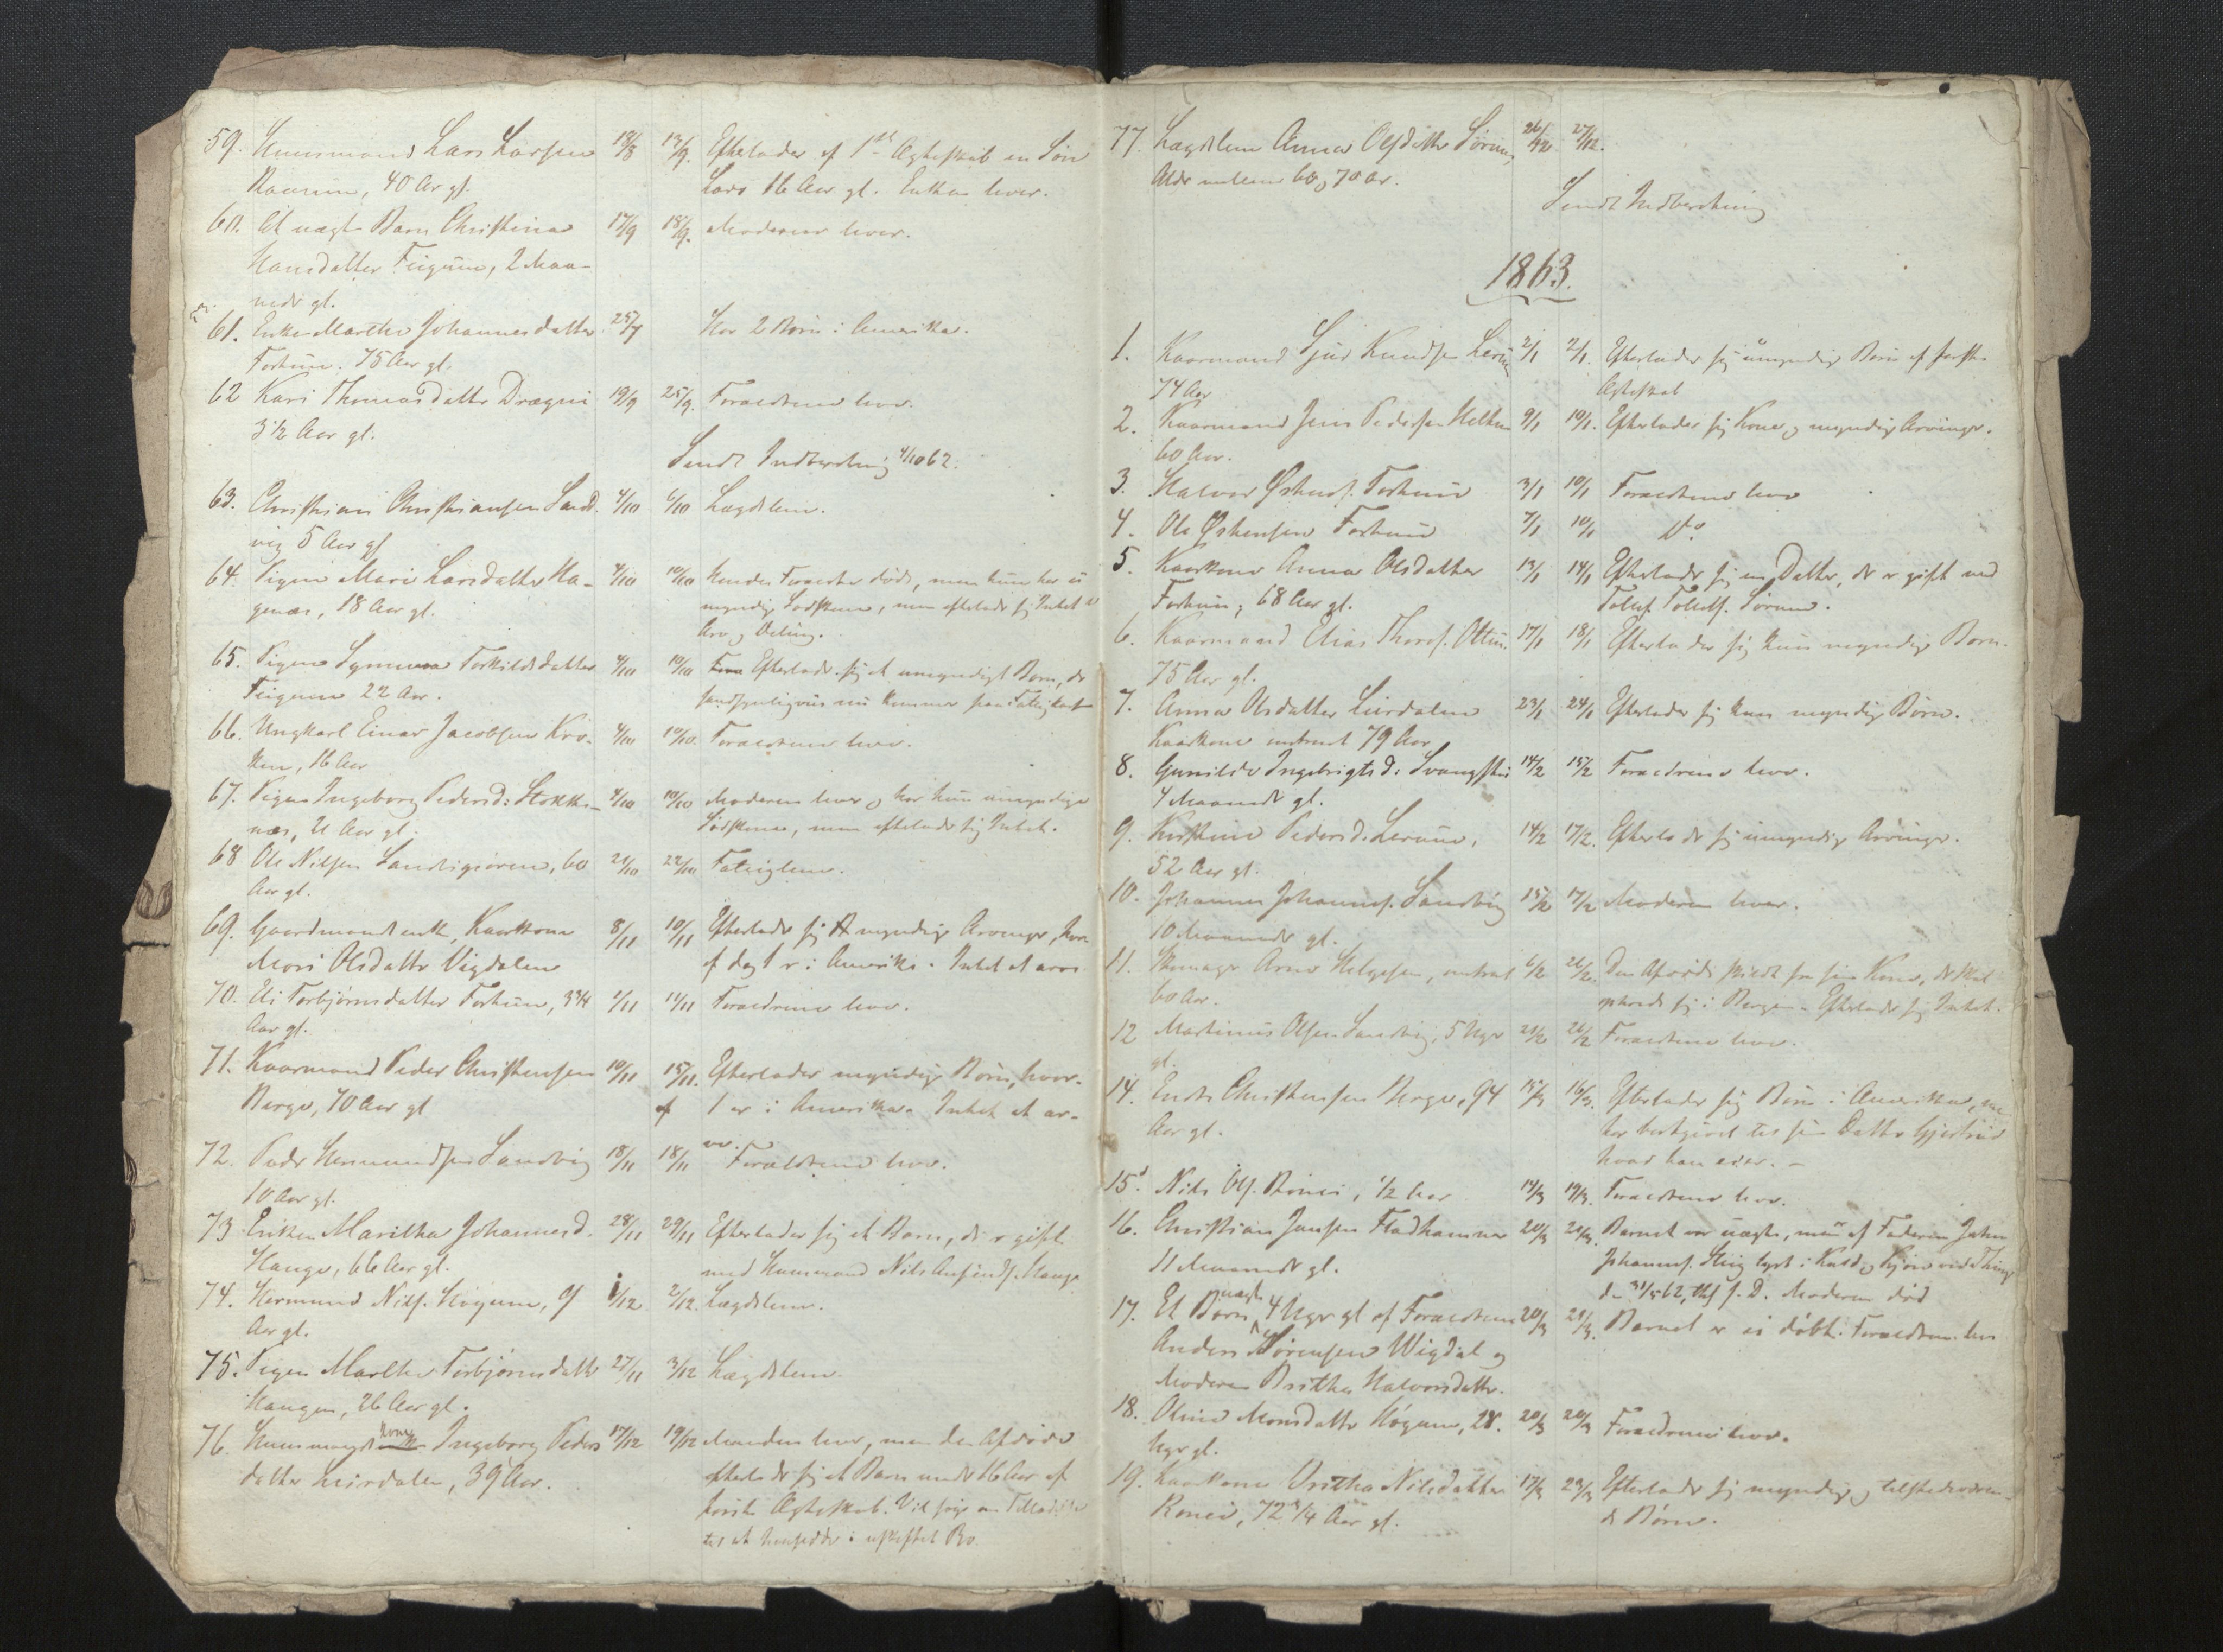 59. Huusmand Lars Larsen 13/8 13/9. Efterlader af 1ste Ægteskab en Søn
Raaum, 40 Aar gl. Lars 16 Aar gl. Enken lever.
60. Et uægte Barn Christina 17/9 18/9. Moderen lever.
Hansdatter Feigum, 2 Maa-
neder gl.
61. Enke Marthe Johannesdatter 25/7 Har 2 Børn i Amerika.
Fortun. 75 Aar gl.
62 Kari Thomasdatter Drægni 19/9 25/9. Forældrene leve.
3 1/2 Aar gl.
Sendt Indberetning 4/10 62.
63. Christian Christiansen Sand- 4/10 6/10 Lægdslem.
vig 5 Aar gl
64. Pigen Mari Larsdatter Ha- 4/10 10/10 Hendes Forældre døde, men hun har u
genæs, 18 Aar gl. myndige Sødskene, men efterlader sig Intet
Arv og Deling.
65. Pigen Synneva Torkildsdatter 4/10 10/10 Efterlader sig et umyndigt Barn, der
Feigum 22 Aar. sandsynligviis nu kommer paa Fattigkassen
66. Ungkarl Einar Jacobsen Kro- 4/10 10/10. Forældrene leve.
ken, 16 Aar
67. Pigen Ingeborg Pedersd: Stokke- 4/10 10/10 Moderen lever og har kun umyndige
næs, 21 Aar gl. Sødskene, men efterlader sig Intet.
68 Ole Nilsen Sandvigsøren, 60 21/10 22/10 Fattiglem.
Aar gl.
69. Gaardmandsenke, Kaarkone 8/11 10/11 Efterlader sig myndige Arvinger, hvor
Mari Olsdatter Vigdalen af dog 1 er i Amerika. Intet at arve.
70. Eli Torbjørnsdatter Fortun, 3 3/4 1/11 11/11 Forældrene leve.
Aar gl.
71. Kaarmand Peder Christensen 10/11 15/11. Efterlader myndige Børn, hvor-
Berge, 70 Aar gl af 1 er i Amerika. Intet at ar-
ve.
72. Peder Hermundsen Sandvig 18/11 18/11 Forældrene leve.
10 Aar gl.
73 Enken Maritha Johannesd. 28/11 29/11 Efterlader sig et Barn, der er gift
Hauge, 66 Aar gl. med Huusmand Nils Hauge
74. Hermund Nilss. Høgum, 9 1/12 2/12. Lægdslem.
Aar gl.
75. Pigen Marthe Torbjørnsdatter 27/11 3/12 Lægdslem.
Haugen, 26 Aar gl.
76. Huusmands kone Ingeborg Peders 17/12 19/12 Manden lever, men den Afdøde
datter Leirdalen, 39 Aar. efterlader sig et Barn under 16 Aar af
første Ægteskab. Vil søge om Tilladelse
til at hensidde i uskiftet Bo.
77. Lægdslem Anna Olsdatter Sørum, 26/12 27/12.
Alder mellem 60 og 70 Aar.
Sendt Indberetning
1863.
1. Kaarmand Sjur Knudsen Lerum 2/1 2/1. Efterlader sig umyndige Børn af første
74 Aar Ægteskab
2. Kaarmand Jens Pedersen 9/1 10/1. Efterlader sig Kone og myndige Arvinger.
60 Aar.
3. Halvor Østens. Fortun 3/1 10/1 Forældrene leve
4. Ole Østensen Fortun 7/1 10/1 Do
5. Kaarkone Anna Olsdatter 13/1 14/1 Efterlader sig en Datter, der er gift med
Fortun, 68 Aar gl. Tollef Tollefs. Sørum.
6. Kaarmand Elias Thors. Ottum 17/1 18/1 Efterlader sig kun myndige Børn.
75 Aar gl.
7. Anna Olsdatter Leirdalen 23/1 24/1 Efterlader sig kun myndige Børn.
Kaarkone omtrent 79 Aar
8. Gunilde Ingebrigtsd: 14/2 15/2 Forældrene leve.
4 Maaneder gl.
9. Kristine Pedersd. Lerum, 14/2 17/2. Efterlader sig umyndige Arvinger.
52 Aar gl.
10. Johannes Johanness. Sandvig 15/2 17/2 Moderen lever.
10 Maaneder gl.
11. Skomager Arne Helgesen, omtrent 6/2 26/2. Den Afdøde skildt fra sin Kone, der skal
60 Aar. opholde sig i Bergen. Efterlader sig Intet.
12 Martinus Olsen Sandvig, 5 Uger 21/2 26/2 Forældrene leve.
gl.
14. Endre Christensen Berge, 94 15/3 16/3. Efterlader sig Børn i Amerika, men
Aar gl. har bortgivet til sin Datter Gjertrud
hvad han eier. —
15. Nils Ols. Rønei, 1/2 Aar 14/3 19/3. Forældrene leve.
16. Christian Jansen Fladhammer 20/3 20/3. Barnet var uægte, men af Faderen John
11 Maaneder gl. Johanness. lyst i Kuld og Kjøn ved Thing
den 31/5 62, Moderen død
17. Et uægte Barn, 4 Uger gl af Forældrene 20/3 21/3. Barnet er ei døbt. Forældrene leve
Anders Sørensen Wigdal og
Moderen Britha Halvorsdatter.
18. Oline Monsdatter Høgum, 28. 20/3 20/3 Forældrene leve.
Uger gl.
19. Kaarkone Britha Nilsdatter 17/3 23/3 Efterlader sig myndige og tilstedeværen-
Rønei, 72 3/4 Aar gl. de Børn.